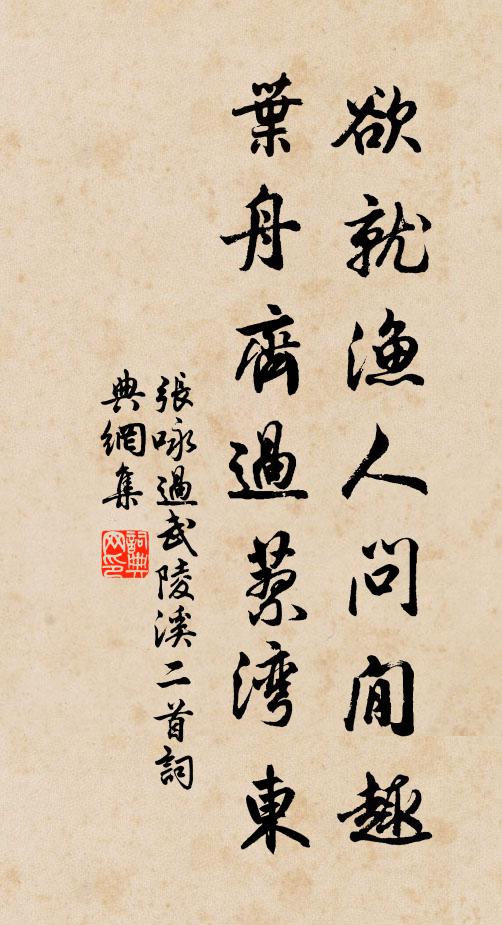 欲就漁人問閒趣
葉舟齊過蓼湾東
張咏過武陵溪二首詞
典網集
詞典
网印